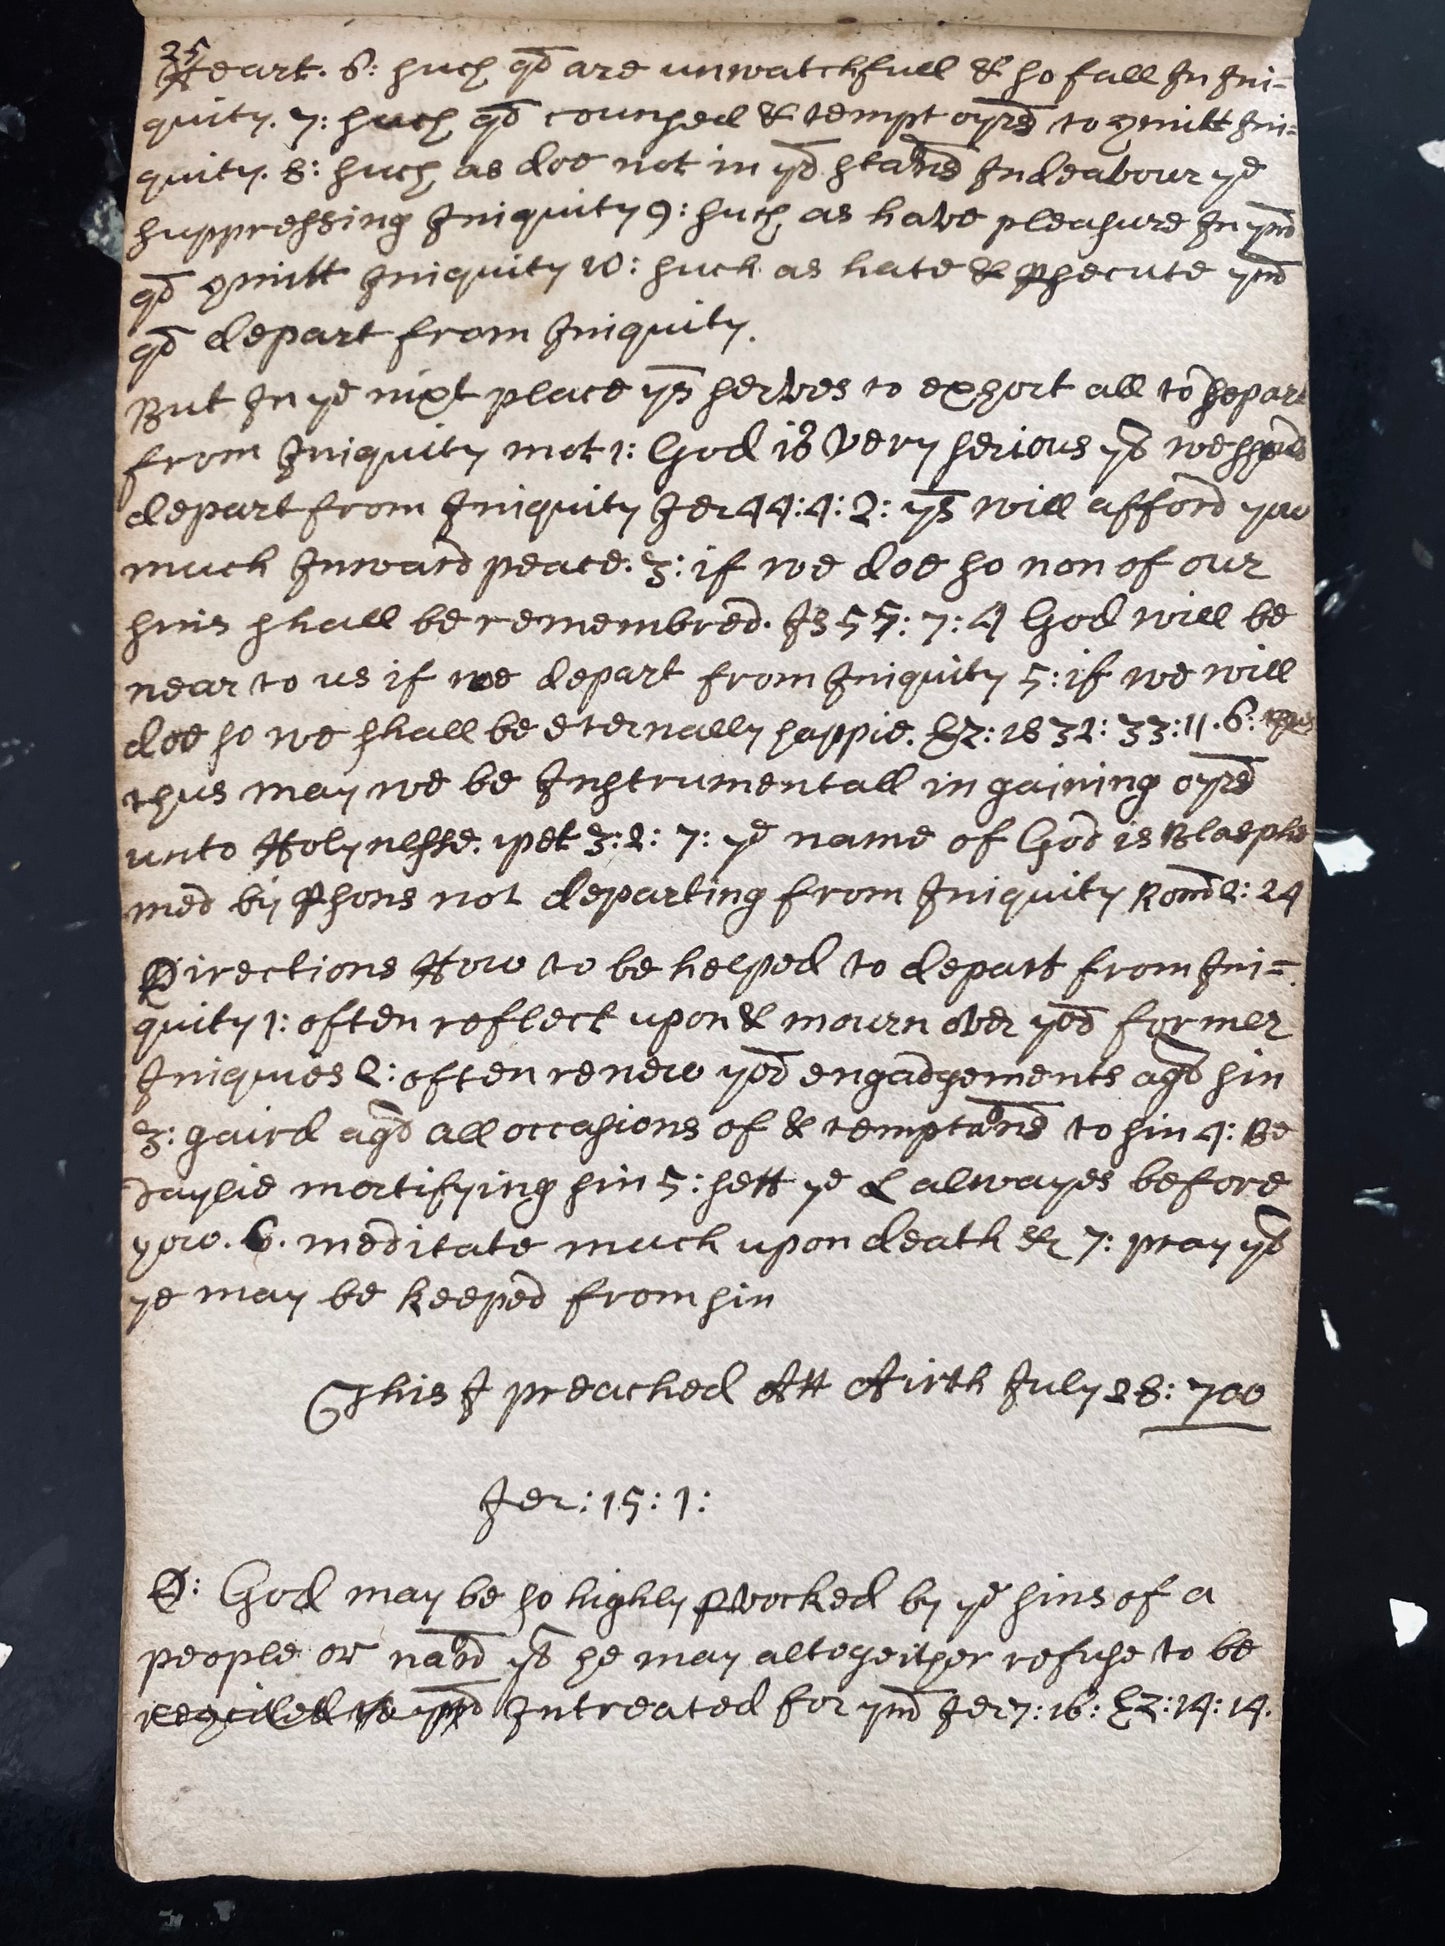 25
Heart. 6: such qd are unwatchfull & so fall In Ini-
quity. 7: such qd counsell & tempt oyrs to comitt Ini=
quity. 8: such as doe not in yd staond Indeavour ye
suppressing Iniquity 9: such as have pleasure In ym
qd comitt Iniquity 10: such as hate & psecute ym
qd depart from Iniquity.
But In ye nixt place ys serves to exhort all to depart
from Iniquity mot 1: God is very serious yt we should
depart from Iniquity Jer 44:4: 2: ys will afford yow
much Inward peace. 3: if we doe so non of our
sins shall be remembred. Is 55: 7: 4 God will be
near to us if we depart from Iniquity 5: if we will
doe so we shall be eternally happie. Ez: 18 32: 33:11. 6:
thus may we be Instrumentall in gaining oyrs
unto Holynesse. 1pet 3:2: 7: ye name of God is Blasphe
med by psons not departing from Iniquity Rom 2: 24
Directions How to be helped to depart from Ini=
quity 1: often reflect upon & mourn over yor former
Iniquies 2: often renew yor engadgements agst sin
3: gaird agst all occasions of & temptaons to sin 4: Be
daylie mortifying sin 5: sett ye L alwayes before
yow. 6. meditate much upon death &c 7: pray yt
ye may be keeped from sin
This I preached Att Airth July 28: 700
Jer: 15: 1:
D: God may be so highly provocked by ye sins of a
people or naon yt he may altogeither refuse to be
Intreated for ym Jer 7: 16: Ez: 14: 14.